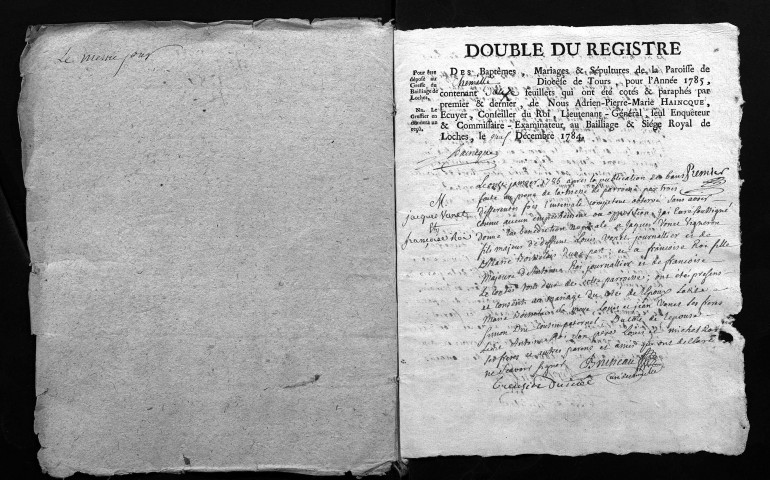 Le meme jour
DOUBLE DU REGISTRE
Pour être
déposé au
Greffe du
Bailliage de
Loches.
Na. Le
Greffier en
donnera un
reçu.
DES Baptêmes, Mariages & Sépultures de la Paroisse de
Diocèse de Tours, pour l'Année 1785,
contenant feuillets qui ont été cotés & paraphés par
premier & dernier, de Nous Adrien-Pierre-Marie HAINCQUE,
Ecuyer, Conseiller du Roi, Lieutenant-Général, seul Enquêteur
& Commissaire-Examinateur, au Bailliage & Siége Royal de
Loches, le Décembre 1784.
Haincque
Premier
M.
jacques Vanet
et
françoise Roi
Le janvier 1786 après la publication des bans
faite au prone de la messe de parroisse par trois
differentes fois l'intervale competent observé sans avoir
connu aucun empêchement ou opposition, j'ai curé soussigné
donné la benediction nuptiale a Jaques Vanet Vigneron
fils majeur de deffunt Louis Vanet journallier et de
Marie d'une part; et a francoise Roi fille
majeure d'Antoine Roi journallier et de francoise
tous deux de cette parroisse; ont eté presens
et consenti au mariage du coté de l'epoux
Marie sa mere, Louis et jean Vanet ses freres
Simon du coté de l'epouse
Antoine Roi son pere Louis et michel Roi
ses freres et autres parens et amis qui ont declaré
ne sçavoir signer
Bruneau